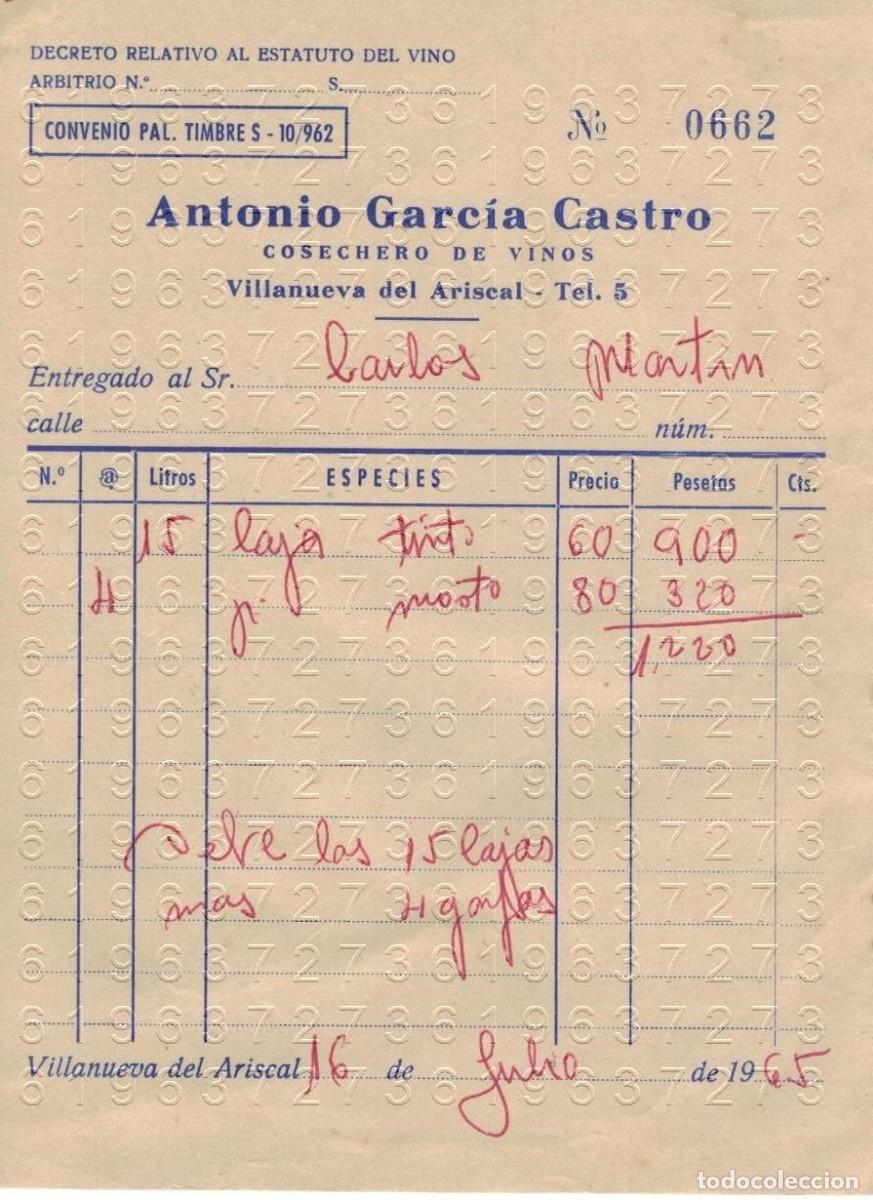 DECRETO RELATIVO AL ESTATUTO DEL VINO
ARBITRIO N.º S.
CONVENIO PAL. TIMBRE S - 10/962
Nº 0662
Antonio García Castro
COSECHERO DE VINOS
Villanueva del Ariscal - Tel. 5
Entregado al Sr. Carlos Martin
calle núm.
N.º @ Litros ESPECIES Precio Pesetas Cts.
15 Cajas tinto 60 900 -
4 mosto 80 320
1,220
Debe las 15 Cajas
mas 4 garrafas
Villanueva del Ariscal 16 de Julio de 1965
todocoleccion